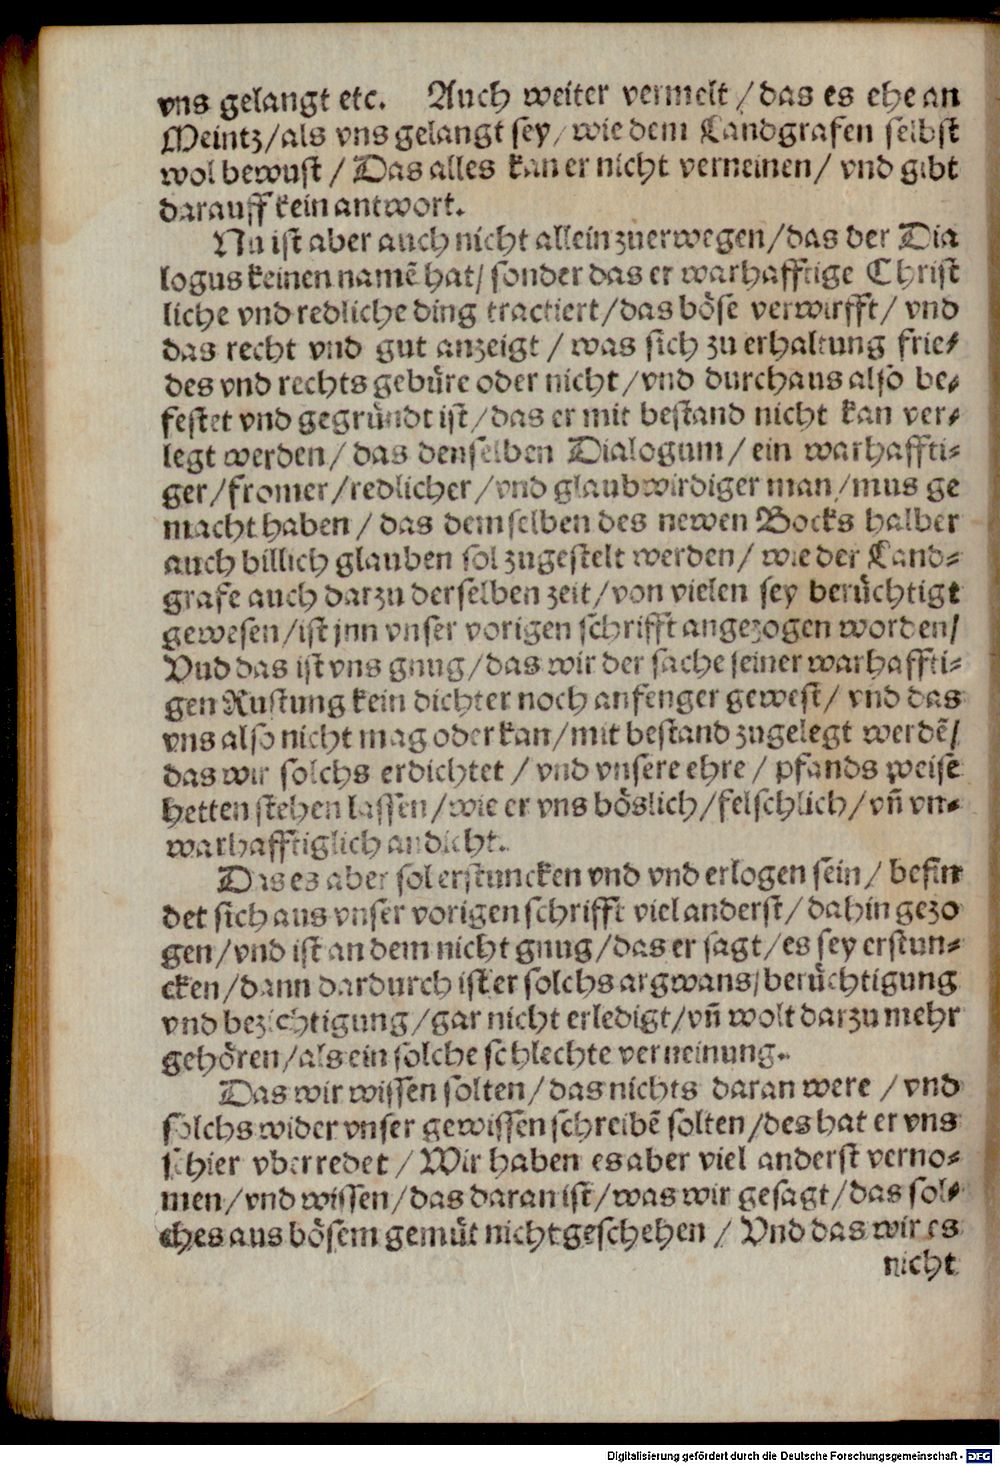 vns gelangt etc. Auch weiter vermelt / das es ehe an
Meintz/als vns gelangt sey/ wie dem Landgrafen selbst
wol bewust / Das alles kan er nicht verneinen/ vnd gibt
darauff kein antwort.
Nu ist aber auch nicht allein zuerwegen/das der Dia
logus keinen namẽ hat/ sonder das er warhafftige Christ
liche vnd redliche ding tractiert/das böse verwirfft/ vnd
das recht vnd gut anzeigt / was sich zu erhaltung frie-
des vnd rechts gebüre oder nicht/vnd durchaus also be-
festet vnd gegründt ist/das er mit bestand nicht kan ver-
legt werden/ das denselben Dialogum/ ein warhaffti-
ger/fromer/redlicher/vnd glaubwirdiger man/mus ge
macht haben / das demselben des newen Bocks halber
auch billich glauben sol zugestelt werden/ wie der Land-
grafe auch darzu derselben zeit/von vielen sey berüchtigt
gewesen/ist jnn vnser vorigen schrifft angezogen worden/
Vnd das ist vns gnug/das wir der sache seiner warhaffti-
gen Rustung kein dichter noch anfenger gewest/ vnd das
vns also nicht mag oder kan/mit bestand zugelegt werdẽ/
das wir solchs erdichtet / vnd vnsere ehre / pfands weise
hetten stehen lassen/wie er vns böslich/felschlich/vñ vn-
warhafftiglich andicht.
Das es aber sol erstuncken vnd vnd erlogen sein/ befin
det sich aus vnser vorigen schrifft viel anderst/ dahin gezo
gen/vnd ist an dem nicht gnug/das er sagt/es sey erstun-
cken/dann dardurch ist er solchs argwans/berüchtigung
vnd bezichtigung/gar nicht erledigt/vñ wolt darzu mehr
gehören/als ein solche schlechte verneinung.
Das wir wissen solten/das nichts daran were / vnd
solchs wider vnser gewissen schreibẽ solten/des hat er vns
schier vberredet / Wir haben es aber viel anderst verno-
men/vnd wissen/das daran ist/was wir gesagt/das sol-
ches aus bösem gemüt nicht geschehen / Vnd das wir es
nicht
Digitalisierung gefördert durch die Deutsche Forschungsgemeinschaft - DFG